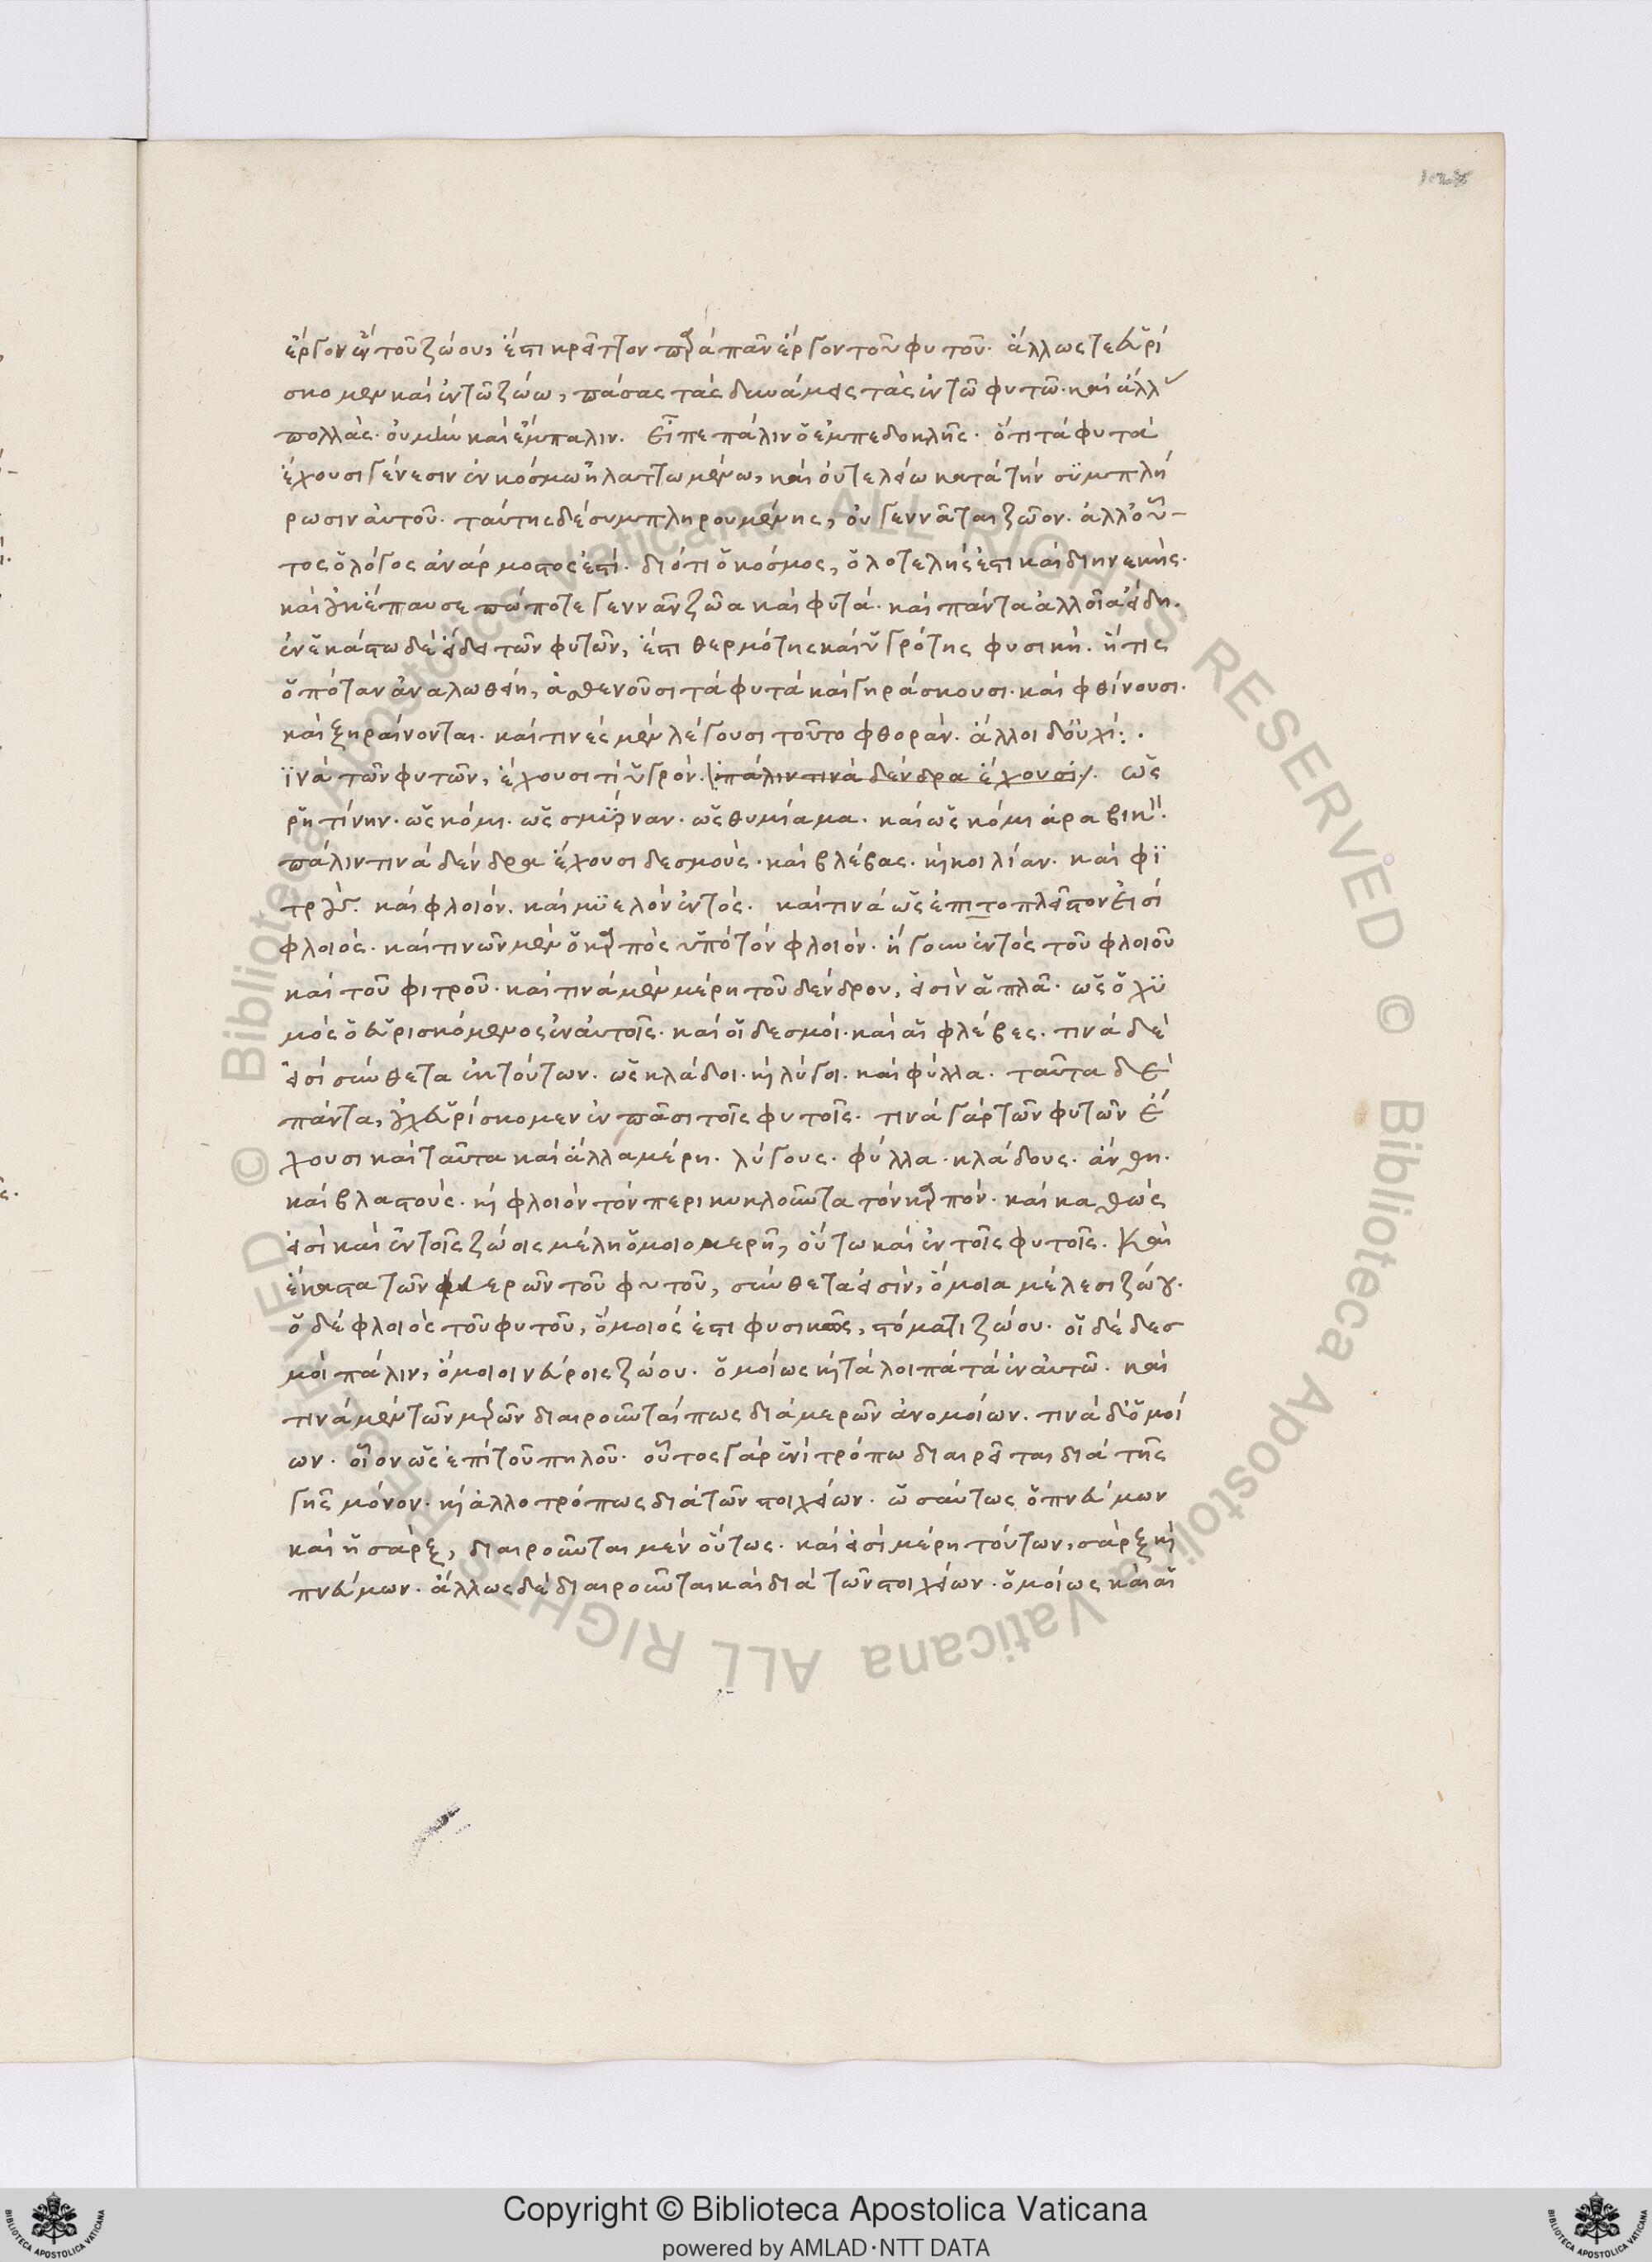 ἔργον ὂν τοῦ ζώου, ἐστὶ κρεῖττον παρὰ πᾶν ἔργον τοῦ φυτοῦ. ἄλλως τε εὑρί
σκομεν καὶ ἐν τῶ ζώω, πάσας τὰς δυνάμεις τὰς ἐν τῶ φυτῶ. καὶ ἄλλ
πολλάς. οὐ μὴν καὶ ἔμπαλιν. Εἶπε πάλιν ὁ ἐμπεδοκλῆς. ὅτι τὰ φυτὰ
ἔχουσι γένεσιν ἐν κόσμω ἠλαττωμένω, καὶ οὐ τελείω κατὰ τὴν συμπλή
ρωσιν αὐτοῦ. ταύτης δὲ συμπληρουμένης, οὐ γεννᾶται ζῶον. ἀλλ' οὗ-
τος ὁ λόγος ἀνάρμοστος ἐστί. διότι ὁ κόσμος, ὁλοτελής ἐστι καὶ διηνεκής.
καὶ οὐκ ἔπαυσε πώποτε γεννᾶν ζῶα καὶ φυτά. καὶ πάντα ἀλλοῖα εἴδη.
ἐν ἑκάστω δὲ εἴδει τῶν φυτῶν, ἐστὶ θερμότης καὶ ὑγρότης φυσική. ἥτις
ὁπόταν ἀναλωθείη, ἀσθενοῦσι τὰ φυτὰ καὶ γηράσκουσι. καὶ φθίνουσι.
καὶ ξηραίνονται. καί τινες μὲν λέγουσι τοῦτο φθοράν. ἄλλοι δ' οὐχί:.
ϊνὰ τῶν φυτῶν, ἔχουσί τι ὑγρόν. πάλιν τινὰ δένδρα ἔχουσι. ὡς
ῥητίνην. ὡς κόμι. ὡς σμύρναν. ὡς θυμίαμα. καὶ ὡς κόμι ἀραβικ
πάλιν τινὰ δένδρα ἔχουσι δεσμούς. καὶ βλέβας. καὶ κοιλίαν. καὶ φϊ
τρούς. καὶ φλοιόν. καὶ μυελὸν ἐντός. καί τινα ὡς ἐπιτοπλεῖστον εἰσὶ
φλοιός. καί τινων μὲν ὁ καρπὸς ὑπὸ τὸν φλοιόν. ἤγουν ἐντὸς τοῦ φλοιοῦ
καὶ τοῦ φιτροῦ. καί τινα μὲν μέρη τοῦ δένδρου, εἰσὶν ἁπλᾶ. ὡς ὁ χϋ
μὸς ὁ εὑρισκόμενος ἐν αὐτοῖς. καὶ οἱ δεσμοί. καὶ αἱ φλέβες. τινὰ δὲ
εἰσὶ σύνθετα ἐκ τούτων. ὡς κλάδοι. καὶ λύγοι. καὶ φύλλα. ταῦτα δὲ
πάντα, οὐχ εὑρίσκομεν ἐν πᾶσι τοῖς φυτοῖς. τινὰ γὰρ τῶν φυτῶν ἔ
χουσι καὶ ταῦτα καὶ ἄλλα μέρη. λύγους. φύλλα. κλάδους. ἄνθη.
καὶ βλαστούς. καὶ φλοιὸν τὸν περικυκλοῦντα τὸν καρπόν. καὶ καθὼς
εἰσὶ καὶ ἐν τοῖς ζώοις μέλη ὁμοιομερῆ, οὕτω καὶ ἐν τοῖς φυτοῖς. Καὶ
ἕκαστα τῶν μερῶν τοῦ φυτοῦ, σύνθετα εἰσίν, ὅμοια μέλεσι ζώου.
ὁ δὲ φλοιὸς τοῦ φυτοῦ, ὅμοιός ἐστι φυσικῶς, στόματι ζώου. οἱ δὲ δεσ
μοὶ πάλιν, ὅμοιοι νεύροις ζώου. ὁμοίως καὶ τὰ λοιπὰ τὰ ἐν αὐτῶ. καὶ
τινὰ μὲν τῶν μερῶν διαιροῦνταί πως διὰ μερῶν ἀνομοίων. τινὰ δ' ὁμοί
ων. οἷον ὡς ἐπὶ τοῦ πηλοῦ. οὗτος γὰρ ἑνὶ τρόπω διαιρεῖται διὰ τῆς
γῆς μόνον. καὶ ἀλλοτρόπως διὰ τῶν στοιχείων. ὡσαύτως ὁ πνεύμων
καὶ ἡ σάρξ, διαιροῦνται μὲν οὕτως. καὶ εἰσὶ μέρη τούτων, σὰρξ καὶ
πνεύμων. ἄλλως δὲ διαιροῦνται καὶ διὰ τῶν στοιχείων. ὁμοίως καὶ αἱ
Copyright © Biblioteca Apostolica Vaticana
powered by AMLAD·NTT DATA